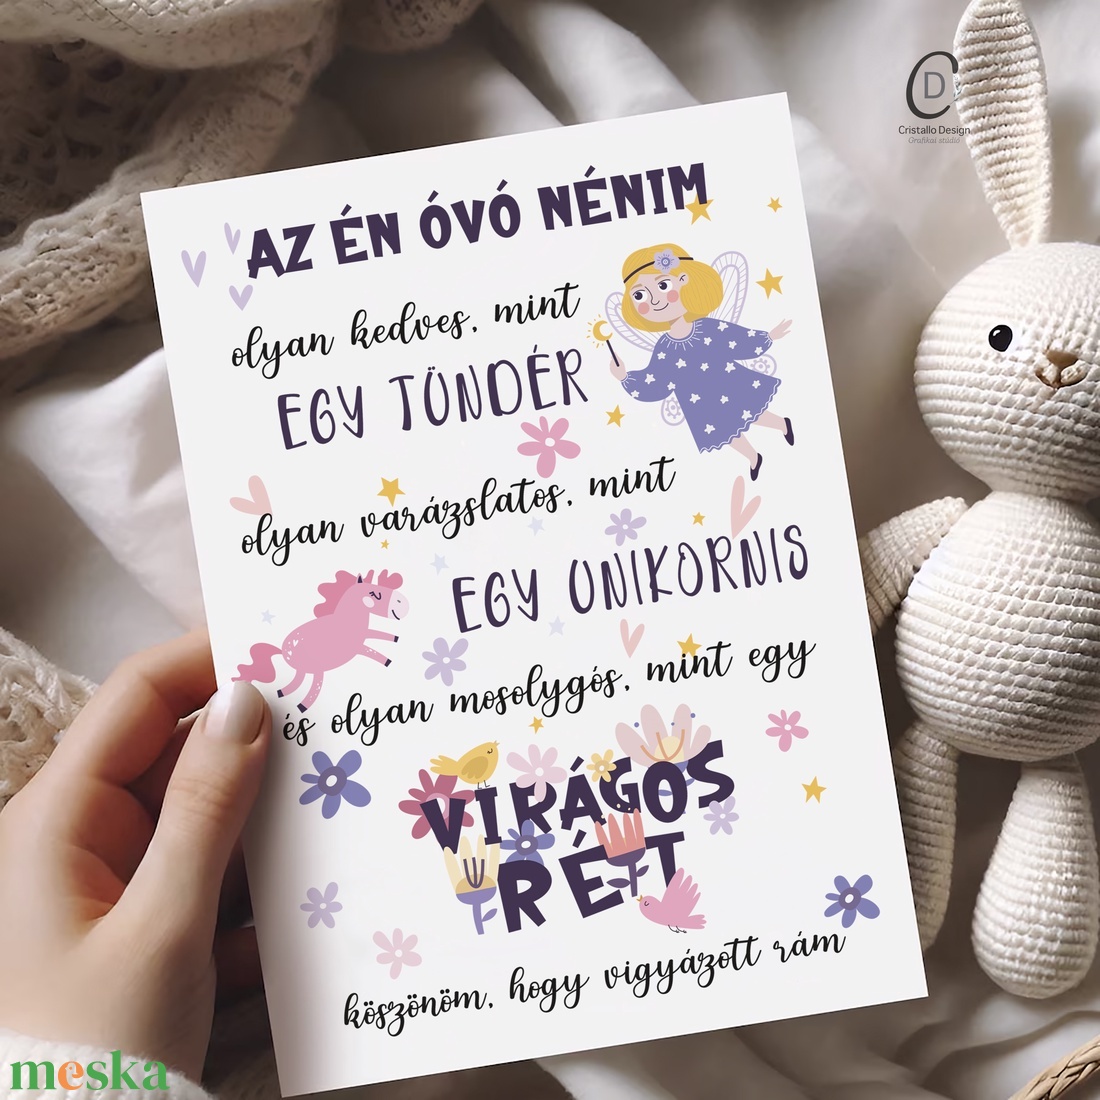 CD
Cristallo Design
Grafikai stúdió
AZ ÉN ÓVÓ NÉNIM
olyan kedves, mint
EGY TÜNDÉR
olyan varázslatos, mint
EGY UNIKORNIS
és olyan mosolygós, mint egy
VIRÁGOS
RÉT
köszönöm, hogy vigyázott rám
meska